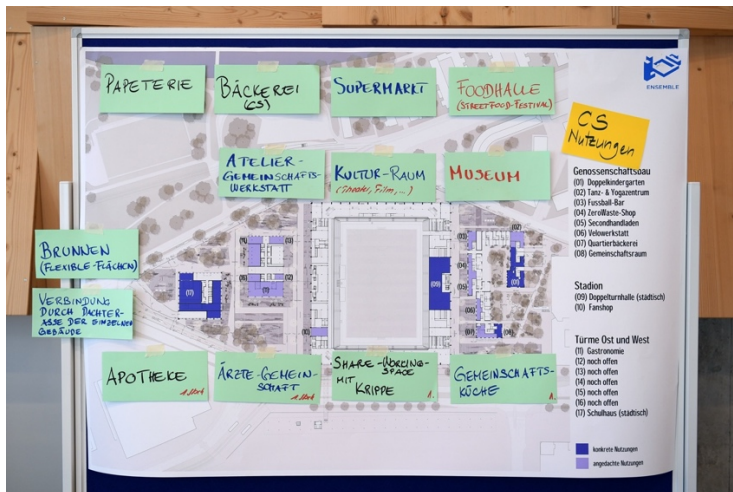 PAPETERIE
BÄCKEREI
(CS)
SUPERMARKT
FOODHALLE
(STREETFOOD-FESTIVAL)
ENSEMBLE
CS
Nutzungen
ATELIER-
GEMEINSCHAFTS-
WERKSTATT
KULTUR-RAUM
MUSEUM
BRUNNEN
(FLEXIBLE-FLÄCHEN)
VERBINDUNG
DURCH DACHTER-
ASSE DER EINZELNEN
GEBÄUDE
APOTHEKE
ÄRZTE-GEMEIN-
SCHAFT
SHARE-WORKING-
SPACE
MIT
KRIPPE
GEMEINSCHAFTS-
KÜCHE
Genossenschaftsbau
(01) Doppelkindergarten
(02) Tanz- & Yogazentrum
(03) Fussball-Bar
(04) ZeroWaste-Shop
(05) Secondhandladen
(06) Velowerkstatt
(07) Quartierbäckerei
(08) Gemeinschaftsraum
Stadion
(09) Doppelturnhalle (städtisch)
(10) Fanshop
Türme Ost und West
(11) Gastronomie
(12) noch offen
(13) noch offen
(14) noch offen
(15) noch offen
(16) noch offen
(17) Schulhaus (städtisch)
konkrete Nutzungen
angedachte Nutzungen